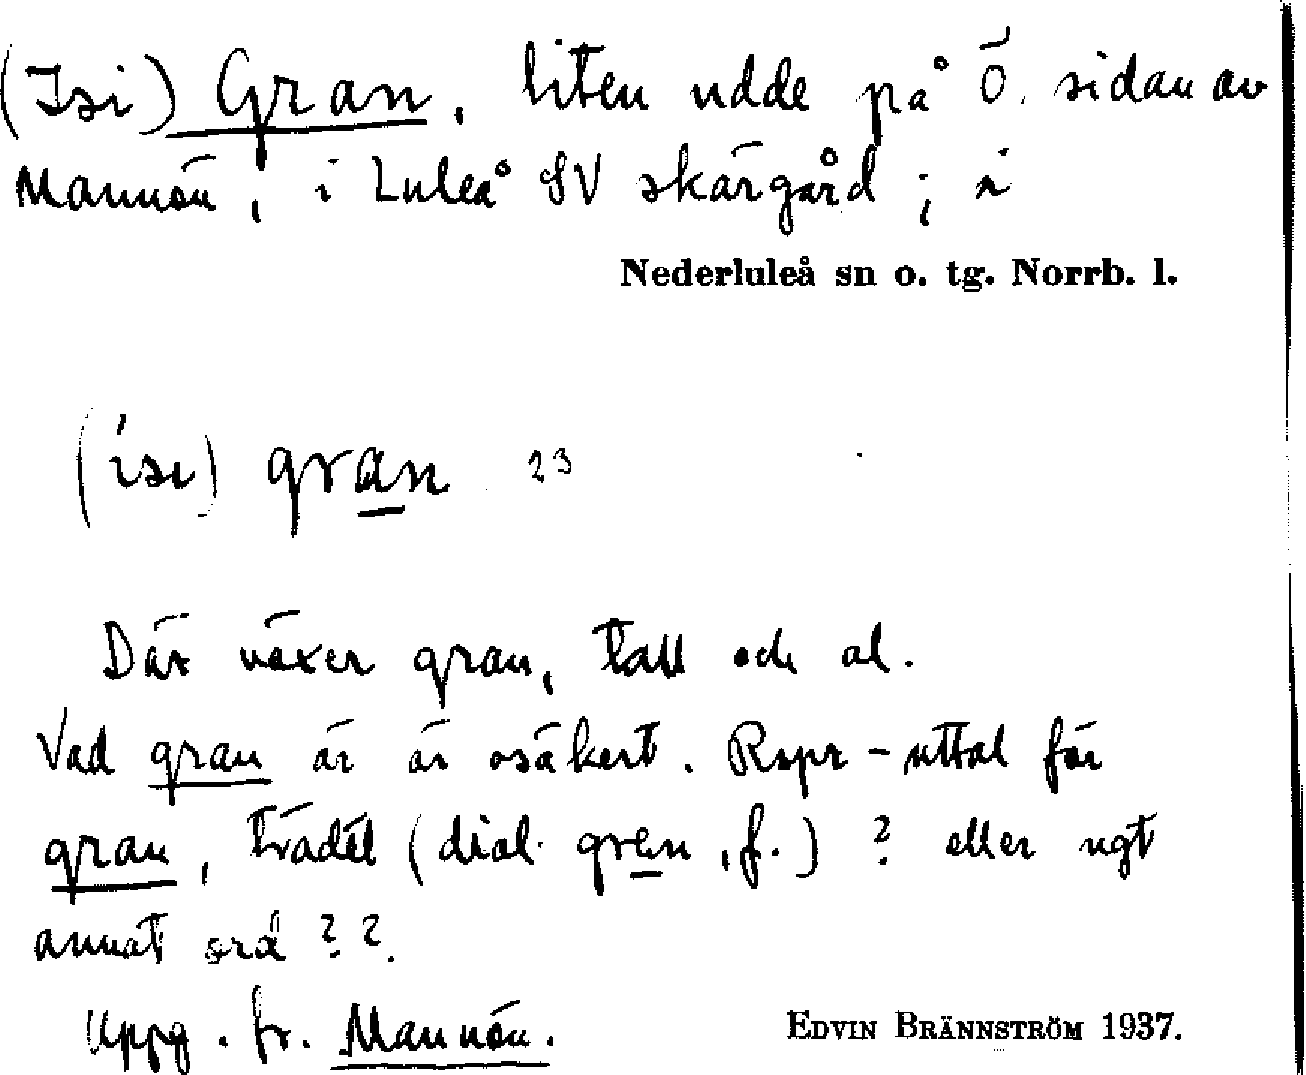 (Isi) Gran, liten udde på Ö. sidan av
Mannön, i Luleå SV skärgård; i
Nederluleå sn o. tg. Norrb. l.
(ísı) gran 23
Där växer gran, tall och al.
Vad gran är är osäkert. Rspr-uttal för
gran, trädet (dial. gren, f.) ? eller ngt
annat ord ??.
Uppg. fr. Mannön.
EDVIN BRÄNNSTRÖM 1937.